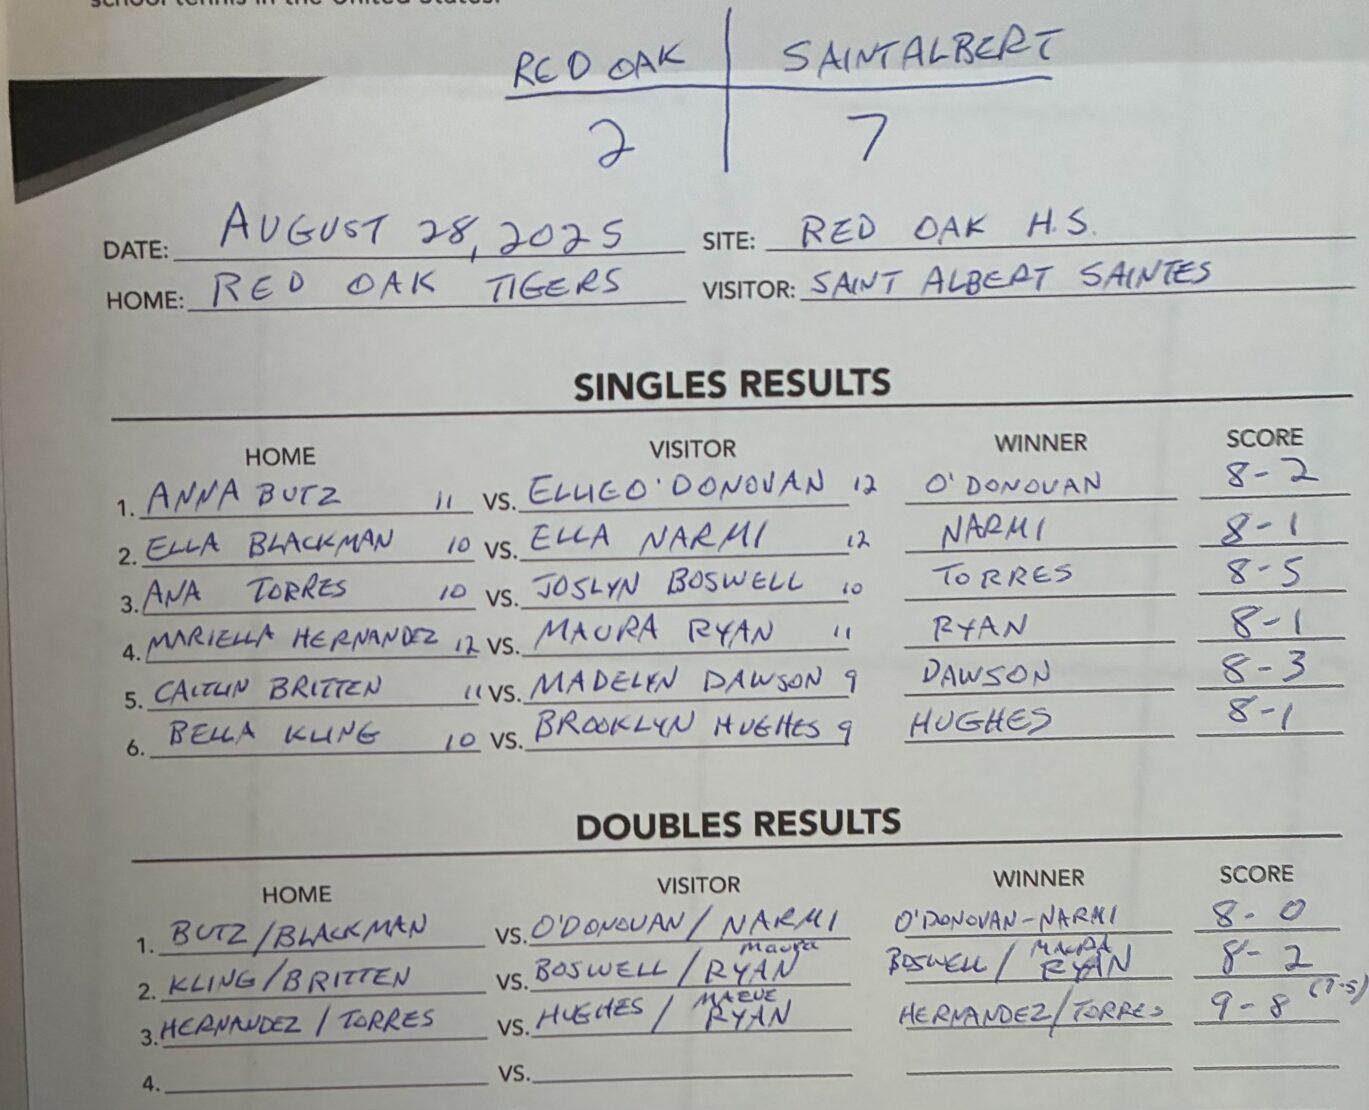 school tennis in the United States.
RED OAK | SAINT ALBERT
2 | 7
DATE: AUGUST 28, 2025 SITE: RED OAK H.S.
HOME: RED OAK TIGERS VISITOR: SAINT ALBERT SAINTES
SINGLES RESULTS
HOME VISITOR WINNER SCORE
1. ANNA BUTZ 11 VS. ELLIE O'DONOVAN 12 O'DONOVAN 8-2
2. ELLA BLACKMAN 10 VS. ELLA NARMI 12 NARMI 8-1
3. ANA TORRES 10 VS. JOSLYN BOSWELL 10 TORRES 8-5
4. MARIELLA HERNANDEZ 12 VS. MAURA RYAN 11 RYAN 8-1
5. CAITLIN BRITTEN 11 VS. MADELYN DAWSON 9 DAWSON 8-3
6. BELLA KLING 10 VS. BROOKLYN HUGHES 9 HUGHES 8-1
DOUBLES RESULTS
HOME VISITOR WINNER SCORE
1. BUTZ/BLACKMAN VS. O'DONOVAN/NARMI O'DONOVAN-NARMI 8-0
2. KLING/BRITTEN VS. BOSWELL/Maura RYAN BOSWELL/MAURA RYAN 8-2
3. HERNANDEZ/TORRES VS. HUGHES/MAEVE RYAN HERNANDEZ/TORRES 9-8 (7-5)
4. VS.